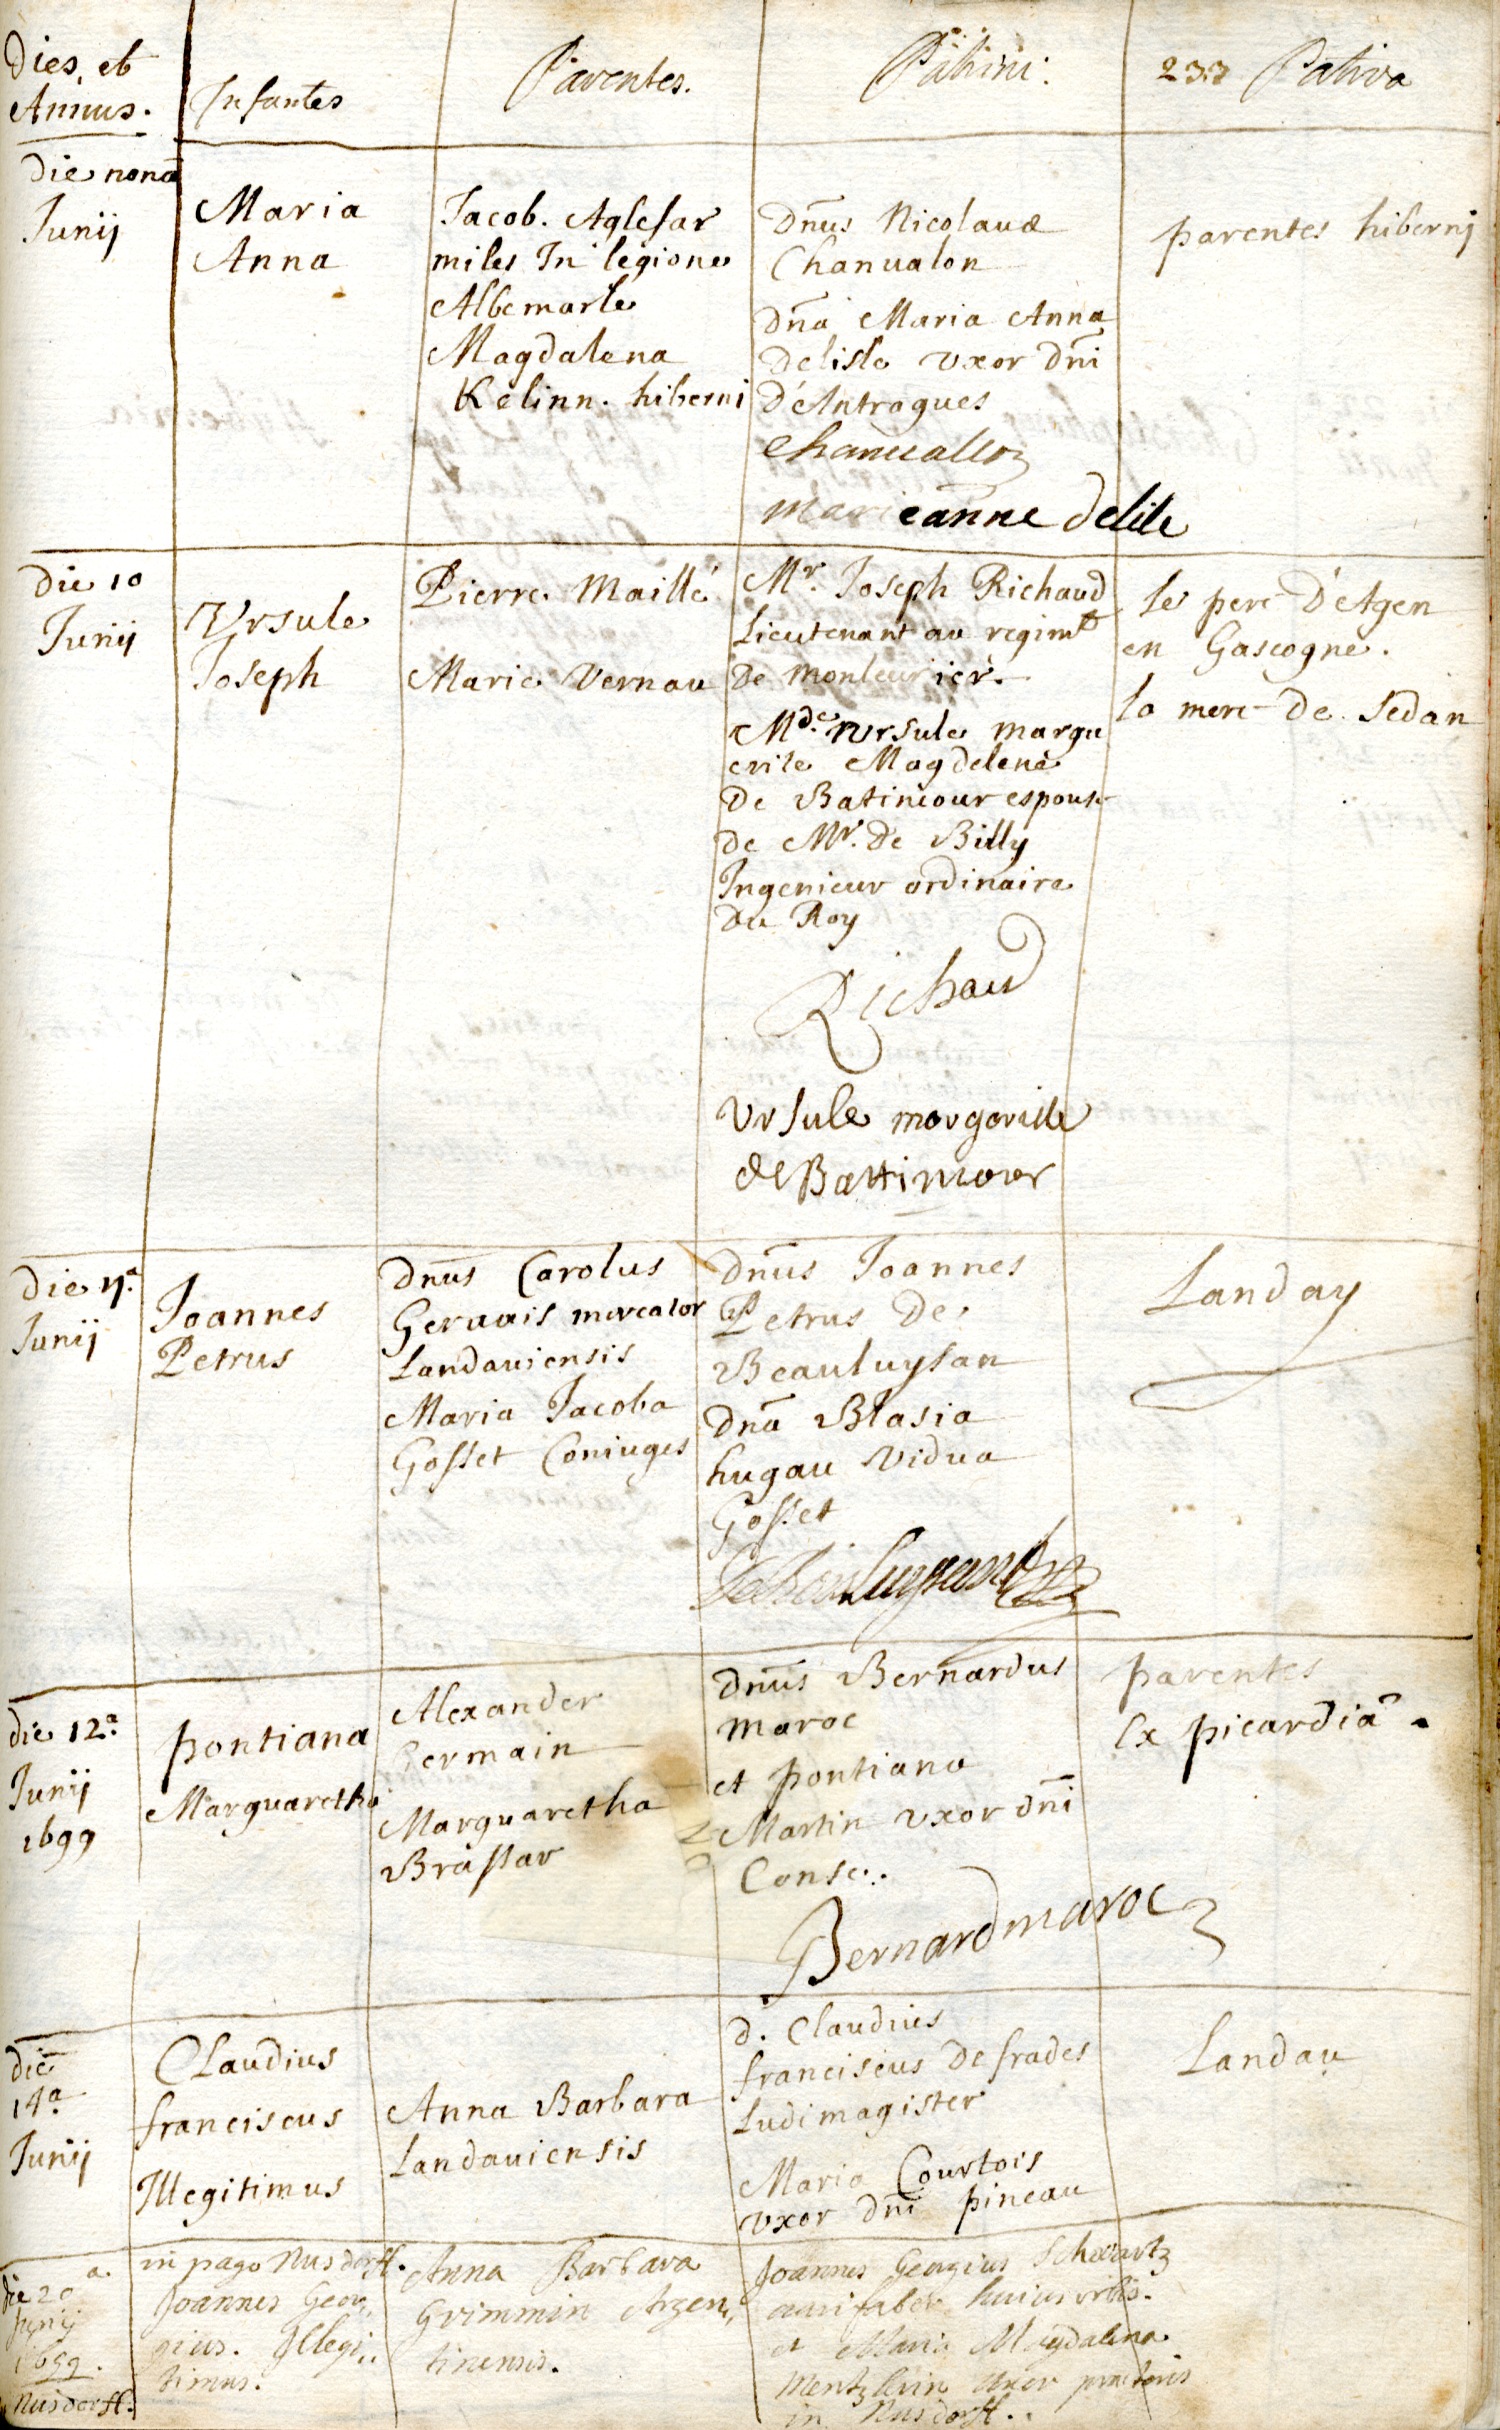 Dies et
Annus.
Infantes
Parentes.
Patrini.
233 Patria
Die nonā
Junij
Maria
Anna
Jacob. Aglesar
miles In legione
Albemarle
Magdalena
Kelinn. hiberni
Dnūs Nicolaus
Chanualon
Dnā Maria Anna
Delisle vxor Dnī
D'Antragues
Chanuallon
marieanne delile
parentes hibernj
Die 10
Junij
Vrsule
Joseph
Pierre Maillé
Marie Vernau
Mr. Joseph Richaud
Lieutenant au regimt
De Monleurier.
Mde. Vrsule margu
erite Magdelene
De Batimour espouse
de Mr. De Billy
Ingenieur ordinaire
Du Roy
Richaud
Vrsule morgorille
de Battimour
le pere D'Agen
en Gascogne.
la mere De Sedan
Die 11a.
Junij
Joannes
Petrus
Dnūs Carolus
Geruais mercator
Landauiensis
Maria Jacoba
Gosset Coniuges
Dnūs Joannes
Petrus De
Beauluysan
Dnā Blasia
hugau Vidua
Gosset
Landau
die 12a.
Junij
1699
pontiana
Marguaretha
Alexander
Germain
Marguaretha
Brassar
Dnūs Bernardus
maroc
et pontiana
Martin vxor dnī
Conse..
Bernard maroc
parentes
Ex picardiā.
die
14a.
Junij
Claudius
franciscus
Illegitimus
Anna Barbara
Landauiensis
d. Claudius
franciscus De frades
Ludimagister
Maria Courtois
vxor Dnī pineau
Landau
die 20a.
Junij
1699.
Nusdorff.
in pago Nusdorff.
Joannes Geor,,
gius. Illegi,,
timus.
Anna Barbara
Grimmin Argen,,
tinensis.
Joannes Georgius Schwartz
aurifaber huius vrbis.
et Maria Magdalena
Mentzlerin uxor praetoris
in Nusdorff..